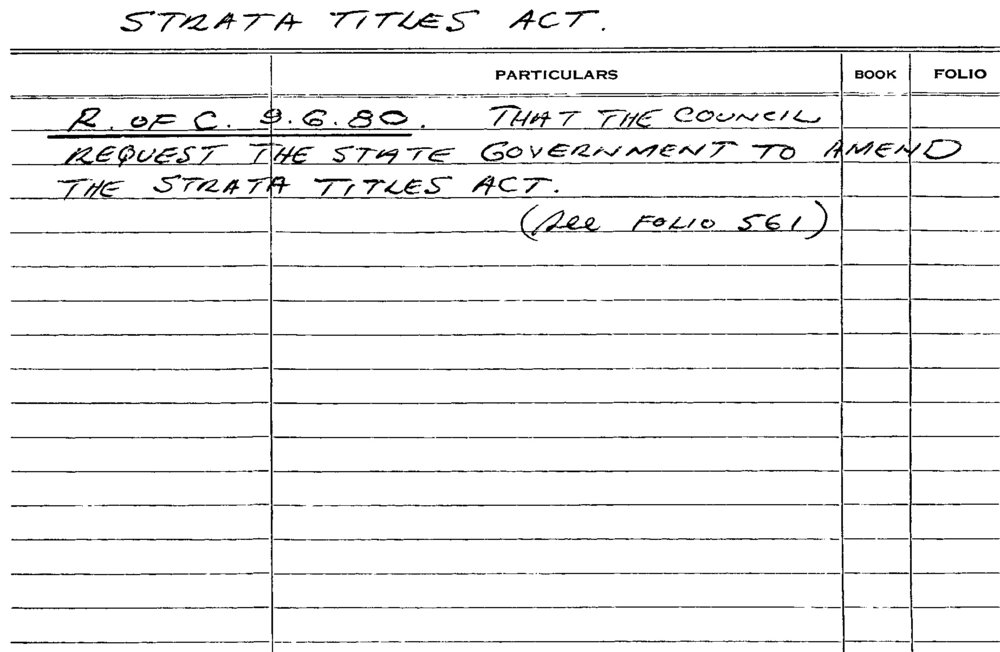 STRATA TITLES ACT.
PARTICULARS BOOK FOLIO
R. OF C. 9.6.80. THAT THE COUNCIL
REQUEST THE STATE GOVERNMENT TO AMEND
THE STRATA TITLES ACT.
(See FOLIO 561)